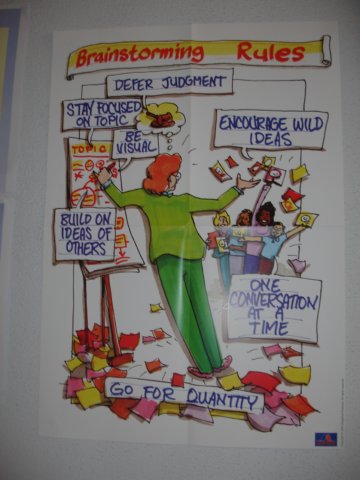 Brainstorming Rules
DEFER JUDGMENT
STAY FOCUSED
ON TOPIC
BE
VISUAL
ENCOURAGE WILD
IDEAS
TOPIC
BUILD ON
IDEAS OF
OTHERS
ONE
CONVERSATION
AT A
TIME
GO FOR QUANTITY